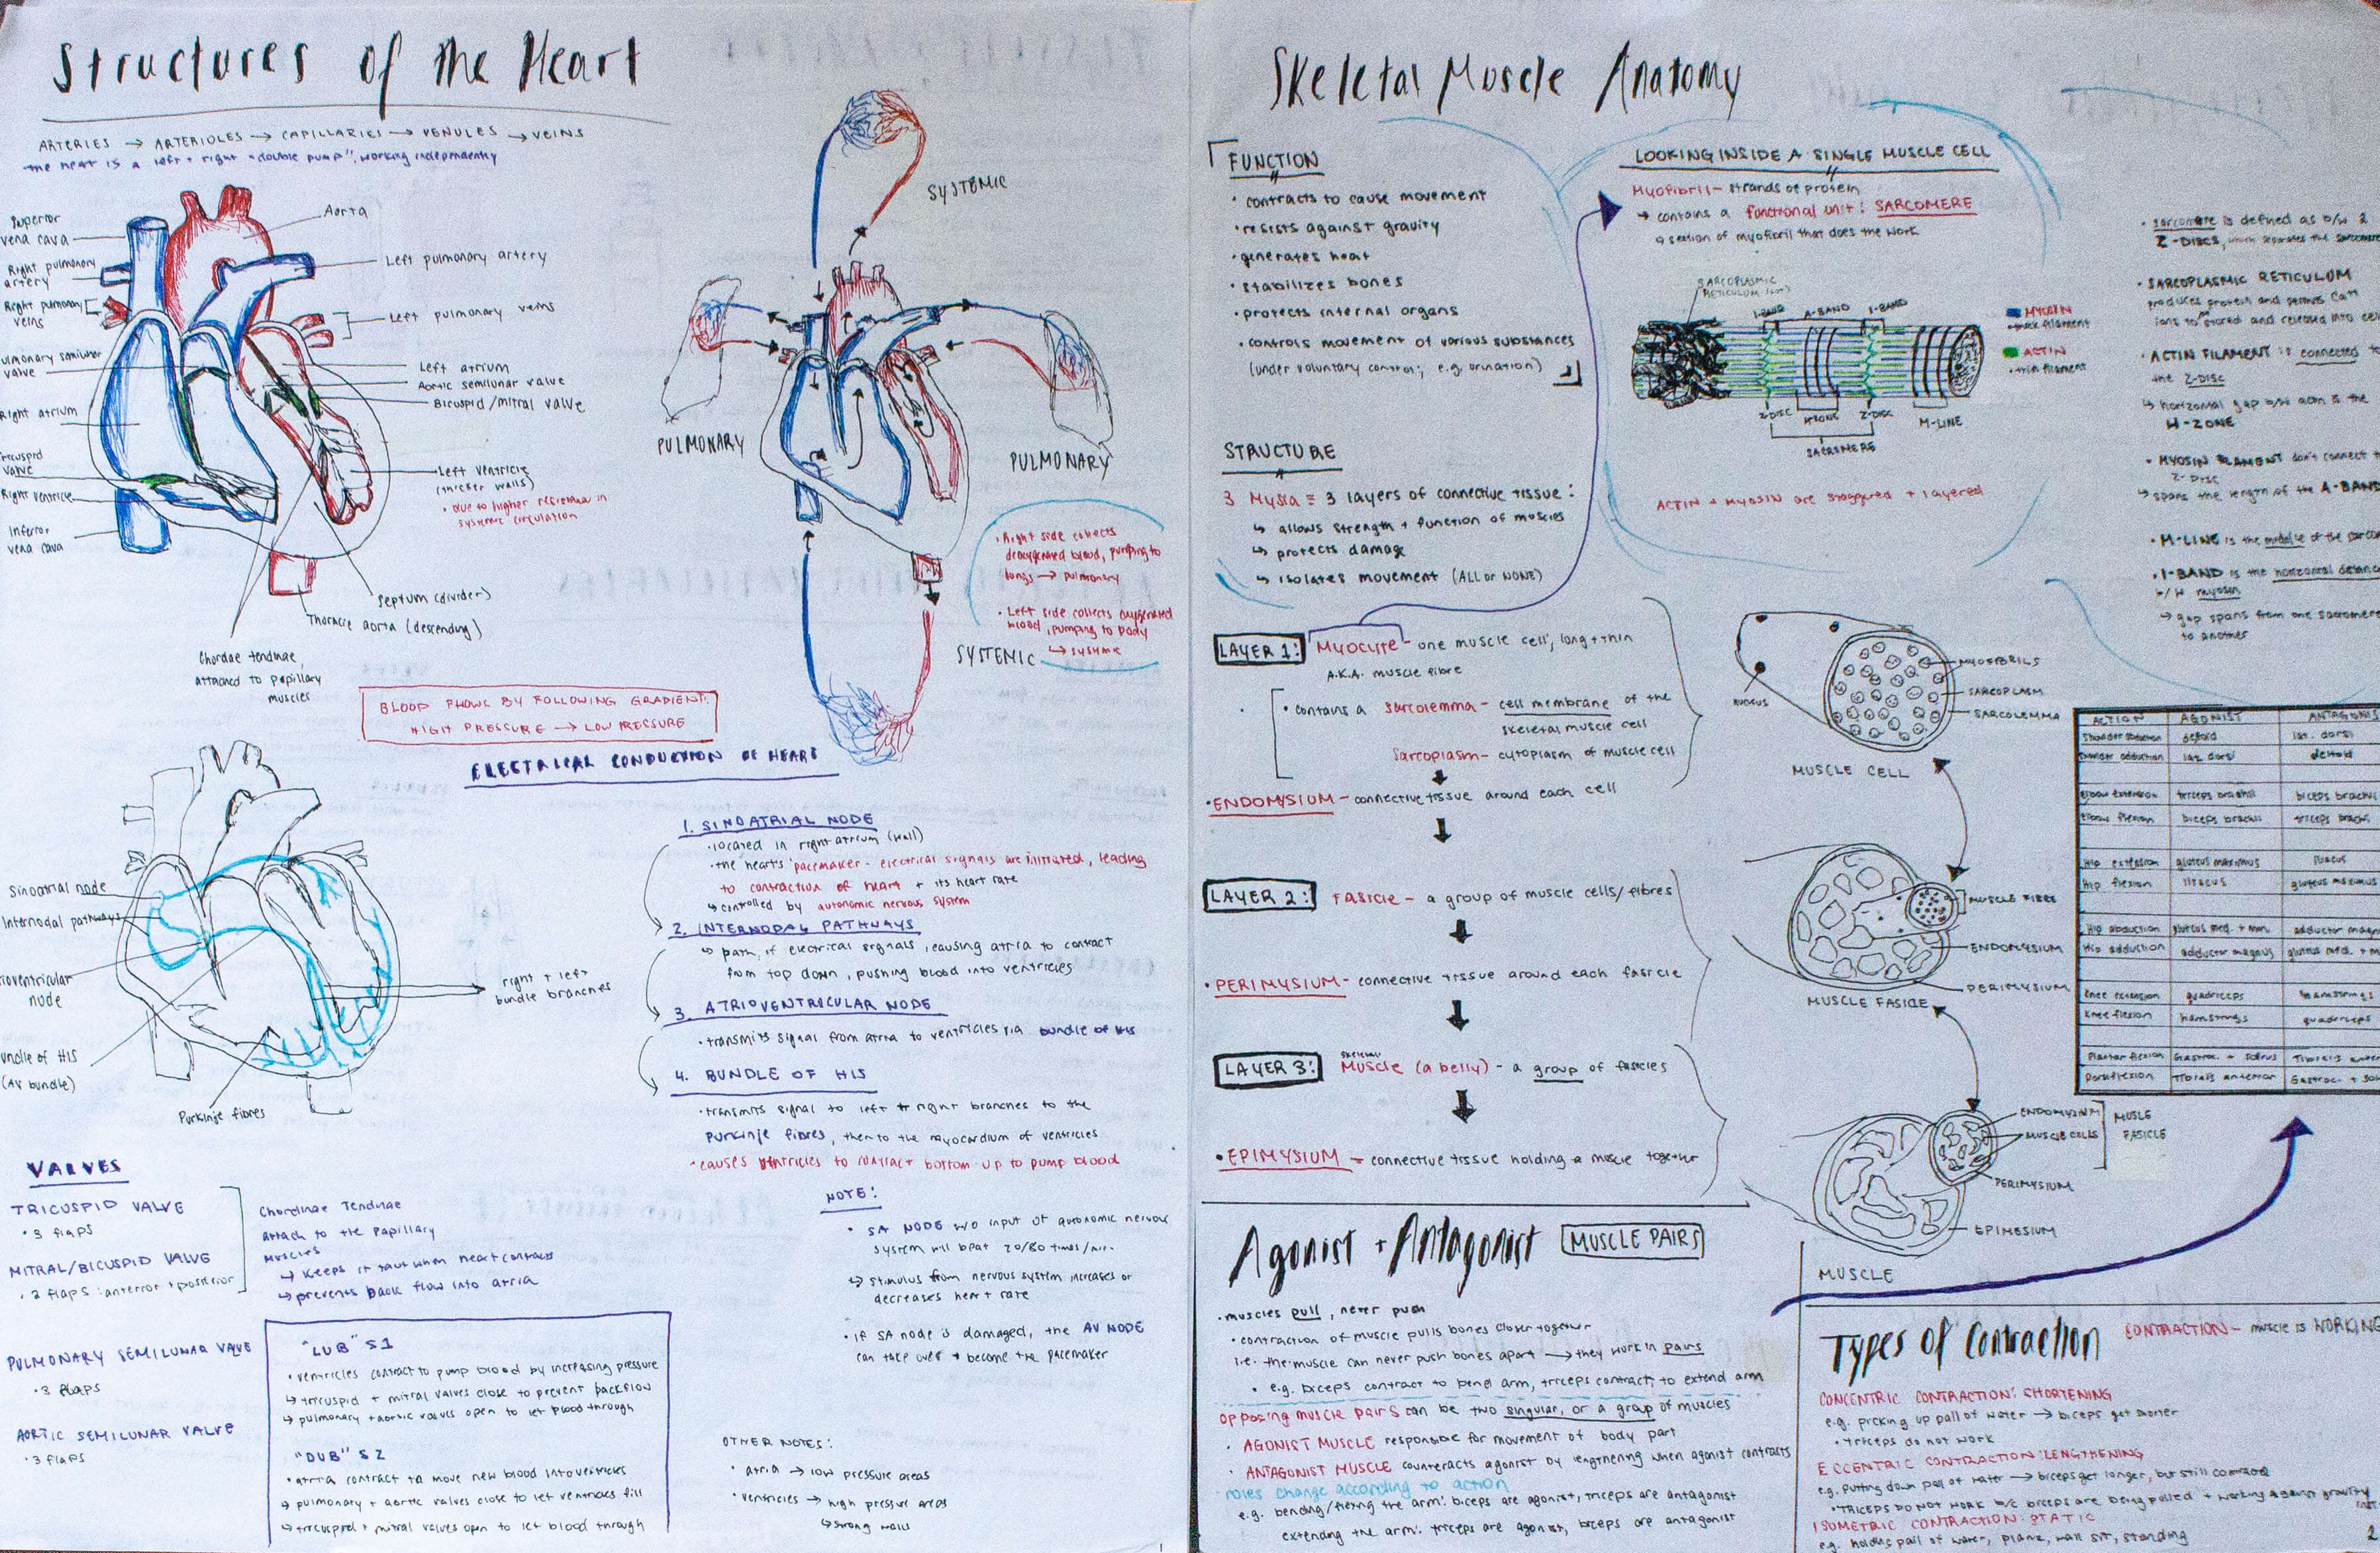 Structures of the Heart
ARTERIES → ARTERIOLES → CAPILLARIES → VENULES → VEINS
the heat is a left + right "double pump", working independently
Superior
vena cava
Right pulmonary
artery
Right pulmonary
veins
ulmonary semilunar
valve
Right atrium
tricuspid
valve
Right ventricle
Inferior
vena cava
Aorta
Left pulmonary artery
Left pulmonary veins
Left atrium
Aortic semilunar valve
Bicuspid/mitral valve
Left ventricle
(thicker walls)
• due to higher resistance in
systemic circulation
Septum (divider)
Thoracic aorta (descending)
Chordae tendinae,
attached to papillary
muscles
SYSTEMIC
PULMONARY
PULMONARY
SYSTEMIC
• Right side collects
deoxygenated blood, pumping to
lungs → pulmonary
• Left side collects oxygenated
blood, pumping to body
↳ systemic
BLOOD FLOWS BY FOLLOWING GRADIENT:
HIGH PRESSURE → LOW PRESSURE
ELECTRICAL CONDUCTION OF HEART
Sinoatrial node
Internodal pathways
rioventricular
node
undle of HIS
(AV bundle)
Purkinje fibres
right + left
bundle branches
1. SINOATRIAL NODE
• located in right atrium (wall)
• the heart's pacemaker - electrical signals are initiated, leading
to contraction of heart + its heart rate
↳ controlled by autonomic nervous system
2. INTERNODAL PATHWAYS
↳ path of electrical signals, causing atria to contract
from top down, pushing blood into ventricles
3. ATRIOVENTRICULAR NODE
• transmits signal from atria to ventricles via bundle of HIS
4. BUNDLE OF HIS
• transmits signal to left + right branches to the
Purkinje fibres, then to the myocardium of ventricles
• causes ventricles to contract bottom-up to pump blood
VALVES
TRICUSPID VALVE
• 3 flaps
MITRAL/BICUSPID VALVE
• 2 flaps: anterior + posterior
PULMONARY SEMILUNAR VALVE
• 3 flaps
AORTIC SEMILUNAR VALVE
• 3 flaps
Chordinae Tendinae
attach to the Papillary
Muscles
↳ keeps it taut when heart contracts
↳ prevents back flow into atria
"LUB" S1
• ventricles contract to pump blood by increasing pressure
↳ tricuspid + mitral valves close to prevent backflow
↳ pulmonary + aortic valves open to let blood through
"DUB" S2
• atria contract to move new blood into ventricles
↳ pulmonary + aortic valves close to let ventricles fill
↳ tricuspid + mitral valves open to let blood through
NOTE:
• SA NODE w/o input of autonomic nervous
system will beat
↳ stimulus from nervous system increases or
decreases heart rate
• if SA node is damaged, the AV NODE
can take over + become the pacemaker
OTHER NOTES:
• atria → low pressure areas
• ventricles → high pressure areas
↳ strong walls
1
Skeletal Muscle Anatomy
FUNCTION
• contracts to cause movement
• resists against gravity
• generates heat
• stabilizes bones
• protects internal organs
• controls movement of various substances
(under voluntary control; e.g. urination)
STRUCTURE
3 Mysia = 3 layers of connective tissue:
↳ allows strength + function of muscles
↳ protects damage
↳ isolates movement (ALL or NONE)
LAYER 1: Myocyte - one muscle cell, long + thin
A.K.A. muscle fibre
• contains a sarcolemma - cell membrane of the
skeletal muscle cell
Sarcoplasm - cytoplasm of muscle cell
• ENDOMYSIUM - connective tissue around each cell
LAYER 2: FASICLE - a group of muscle cells/fibres
• PERIMYSIUM - connective tissue around each fasicle
LAYER 3: skeletal Muscle (a belly) - a group of fasicles
• EPIMYSIUM - connective tissue holding a muscle together
LOOKING INSIDE A SINGLE MUSCLE CELL
Myofibril - strands of protein
→ contains a functional unit: SARCOMERE
↳ section of myofibril that does the work
SARCOPLASMIC
RETICULUM
I-BAND
A-BAND
I-BAND
MYOSIN
• thick filament
ACTIN
• thin filament
Z-DISC
H-ZONE
Z-DISC
M-LINE
SACROMERE
ACTIN + MYOSIN are staggered + layered
• sarcomere is defined as b/w 2
Z-DISCS, which separates the sarcomere
• SARCOPLASMIC RETICULUM
produces protein and permits Ca++
ions to stored and released into cel
• ACTIN FILAMENT is connected to
the Z-DISC
↳ horizontal gap b/w actin is the
H-ZONE
• MYOSIN FILAMENT don't connect t
Z-DISC
↳ spans the length of the A-BAND
• M-LINE is the middle of the sarco
• I-BAND is the horizontal distanc
b/w myosin
↳ gap spans from one sacromere
to another
NUCLEUS
MYOFIBRILS
SARCOPLASM
SARCOLEMMA
MUSCLE CELL
MUSCLE FIBRE
ENDOMYSIUM
PERIMYSIUM
MUSCLE FASICLE
ENDOMYSIUM
MUSCLE CELLS
MUSLE
FASICLE
PERIMYSIUM
EPIMESIUM
MUSCLE
ACTION AGONIST ANTAGONIS
Shoulder abduction deltoid lat. dorsi
Shoulder adduction lat. dorsi deltoid
Elbow extension triceps brachii biceps brachii
Elbow flexion biceps brachii triceps brachii
Hip extension gluteus maximus iliacus
Hip flexion iliacus gluteus maximus
Hip abduction gluteus med. + min. adductor magn
Hip adduction adductor magnus gluteus med. + m
Knee extension quadriceps hamstrings
Knee flexion hamstrings quadriceps
Plantar flexion Gastroc. + Soleus Tibialis anter
Dorsiflexion Tibialis anterior Gastroc. + Sol
Agonist + Antagonist MUSCLE PAIRS
• muscles pull, never push
• contraction of muscle pulls bones closer together
i.e. the muscle can never push bones apart → they work in pairs
• e.g. biceps contract to bend arm, triceps contract to extend arm
opposing muscle pairs can be two singular, or a group of muscles
• AGONIST MUSCLE responsible for movement of body part
• ANTAGONIST MUSCLE counteracts agonist by lengthening when agonist contracts
• roles change according to action
e.g. bending/flexing the arm: biceps are agonist, triceps are antagonist
extending the arm: triceps are agonist, biceps are antagonist
Types of Contraction
CONTRACTION - muscle is WORKING
CONCENTRIC CONTRACTION: SHORTENING
e.g. picking up pail of water → biceps get shorter
• triceps do not work
ECCENTRIC CONTRACTION: LENGTHENING
e.g. putting down pail of water → biceps get longer, but still contract
• TRICEPS DO NOT WORK b/c biceps are being pulled + working against gravity
ISOMETRIC CONTRACTION: STATIC
e.g. holding pail of water, plank, wall sit, standing
2